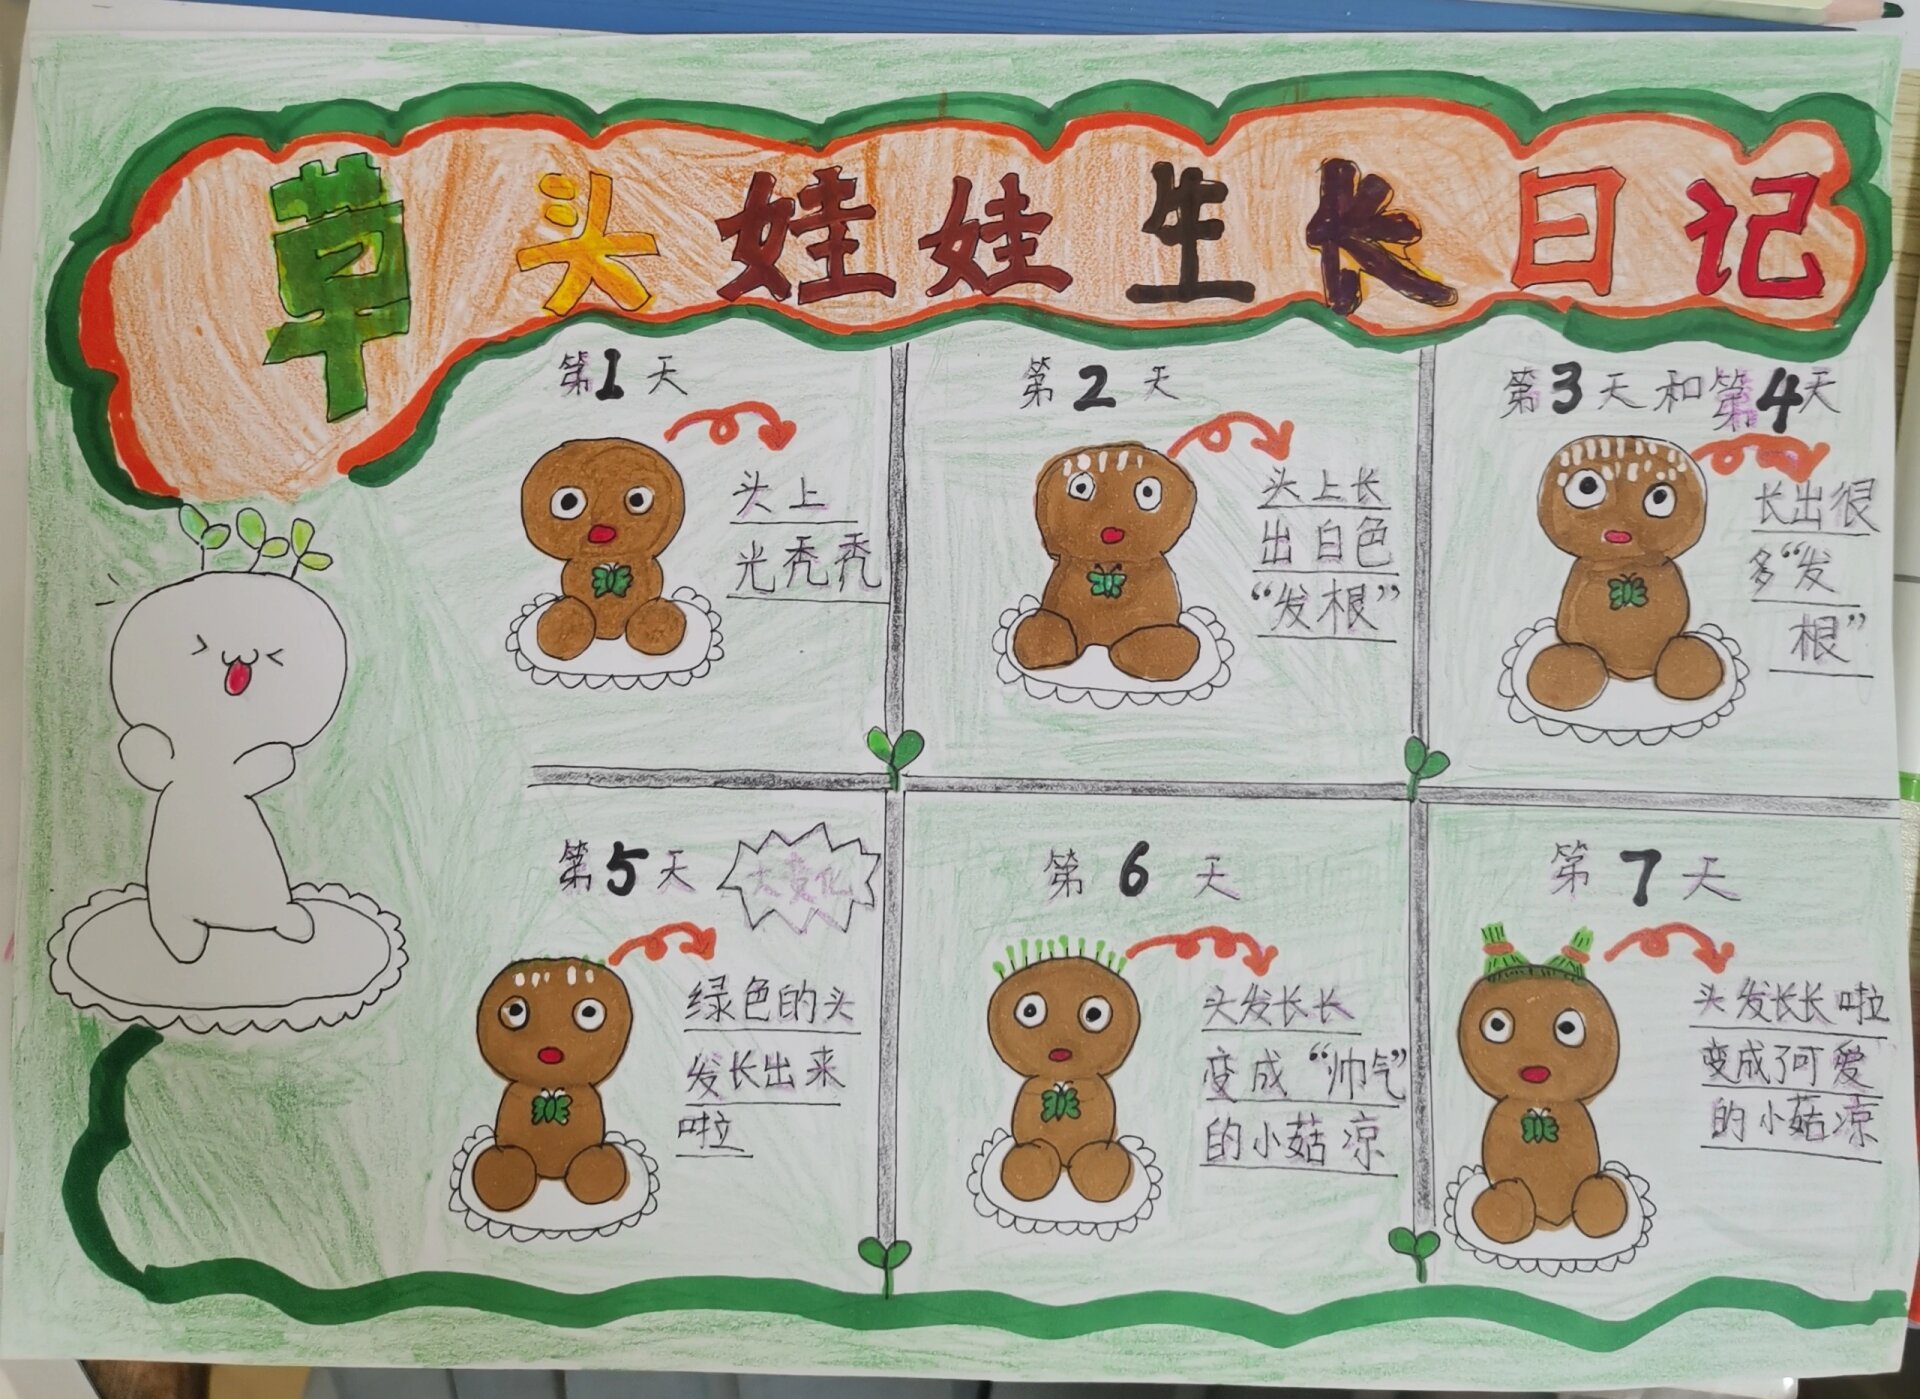 草头娃娃生长日记
第1天
头上
光秃秃
第2天
头上长
出白色
“发根”
第3天和第4天
长出很
多“发
根”
第5天
大变化
绿色的头
发长出来
啦
第6天
头发长长
变成“帅气”
的小菇凉
第7天
头发长长啦
变成了可爱
的小菇凉